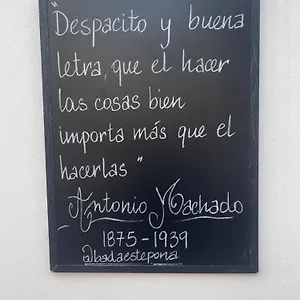 "Despacito y buena
letra, que el hacer
las cosas bien
importa más que el
hacerlas"
Antonio Machado
1875-1939
@bedaestepona